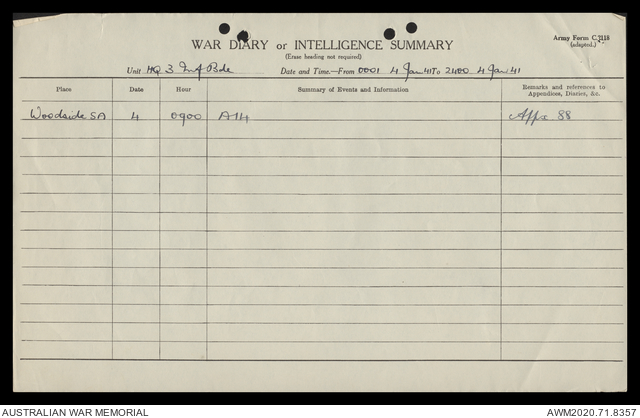 Army Form C.2118
(adapted.)
WAR DIARY or INTELLIGENCE SUMMARY
(Erase heading not required)
Unit HQ 3 Inf Bde Date and Time.—From 0001 4 Jan 41 To 2400 4 Jan 41
Place Date Hour Summary of Events and Information Remarks and references to Appendices, Diaries, &c.
Woodside SA 4 0900 A14 Appx 88
AUSTRALIAN WAR MEMORIAL AWM2020.71.8357